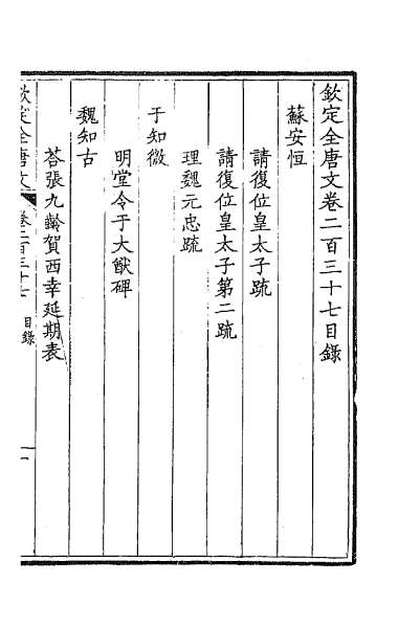 欽定全唐文卷二百三十七目錄
蘇安恒
請復位皇太子疏
請復位皇太子第二疏
理魏元忠疏
于知微
明堂令于大猷碑
魏知古
荅張九齡賀西幸延期表
欽定全唐文 卷二百三十七 目錄 一